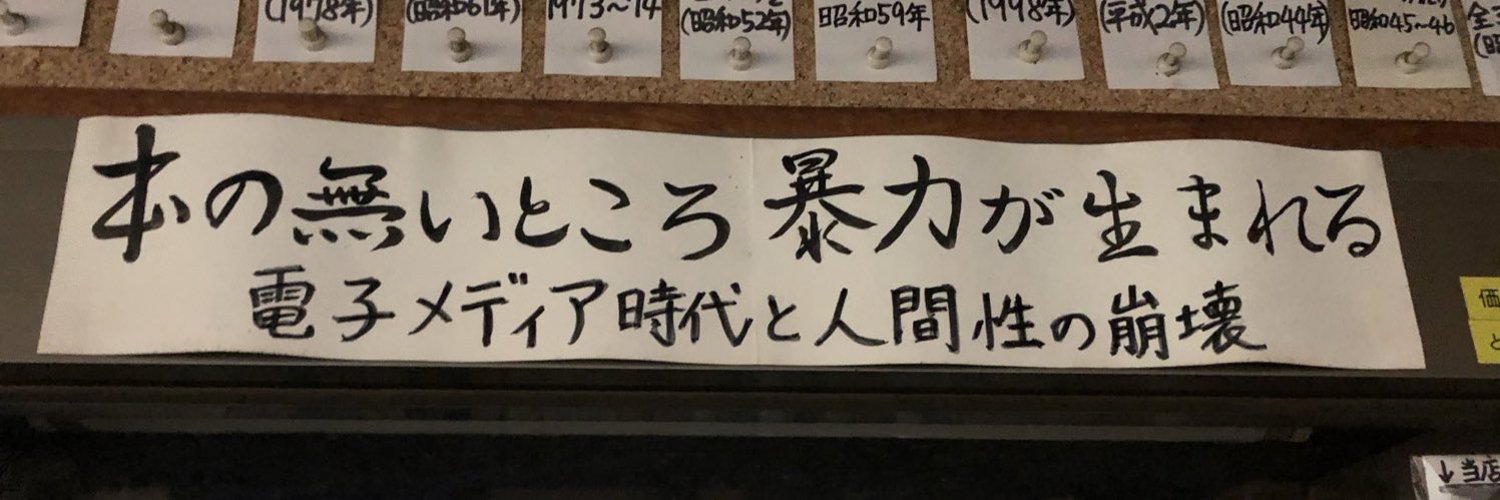 (1978年)
(昭和61年)
1973〜74
(昭和52年)
昭和59年
(1998年)
(平成2年)
(昭和44年)
昭和45〜46
本の無いところ 暴力が生まれる
電子メディア時代と人間性の崩壊
価
と
↓当店